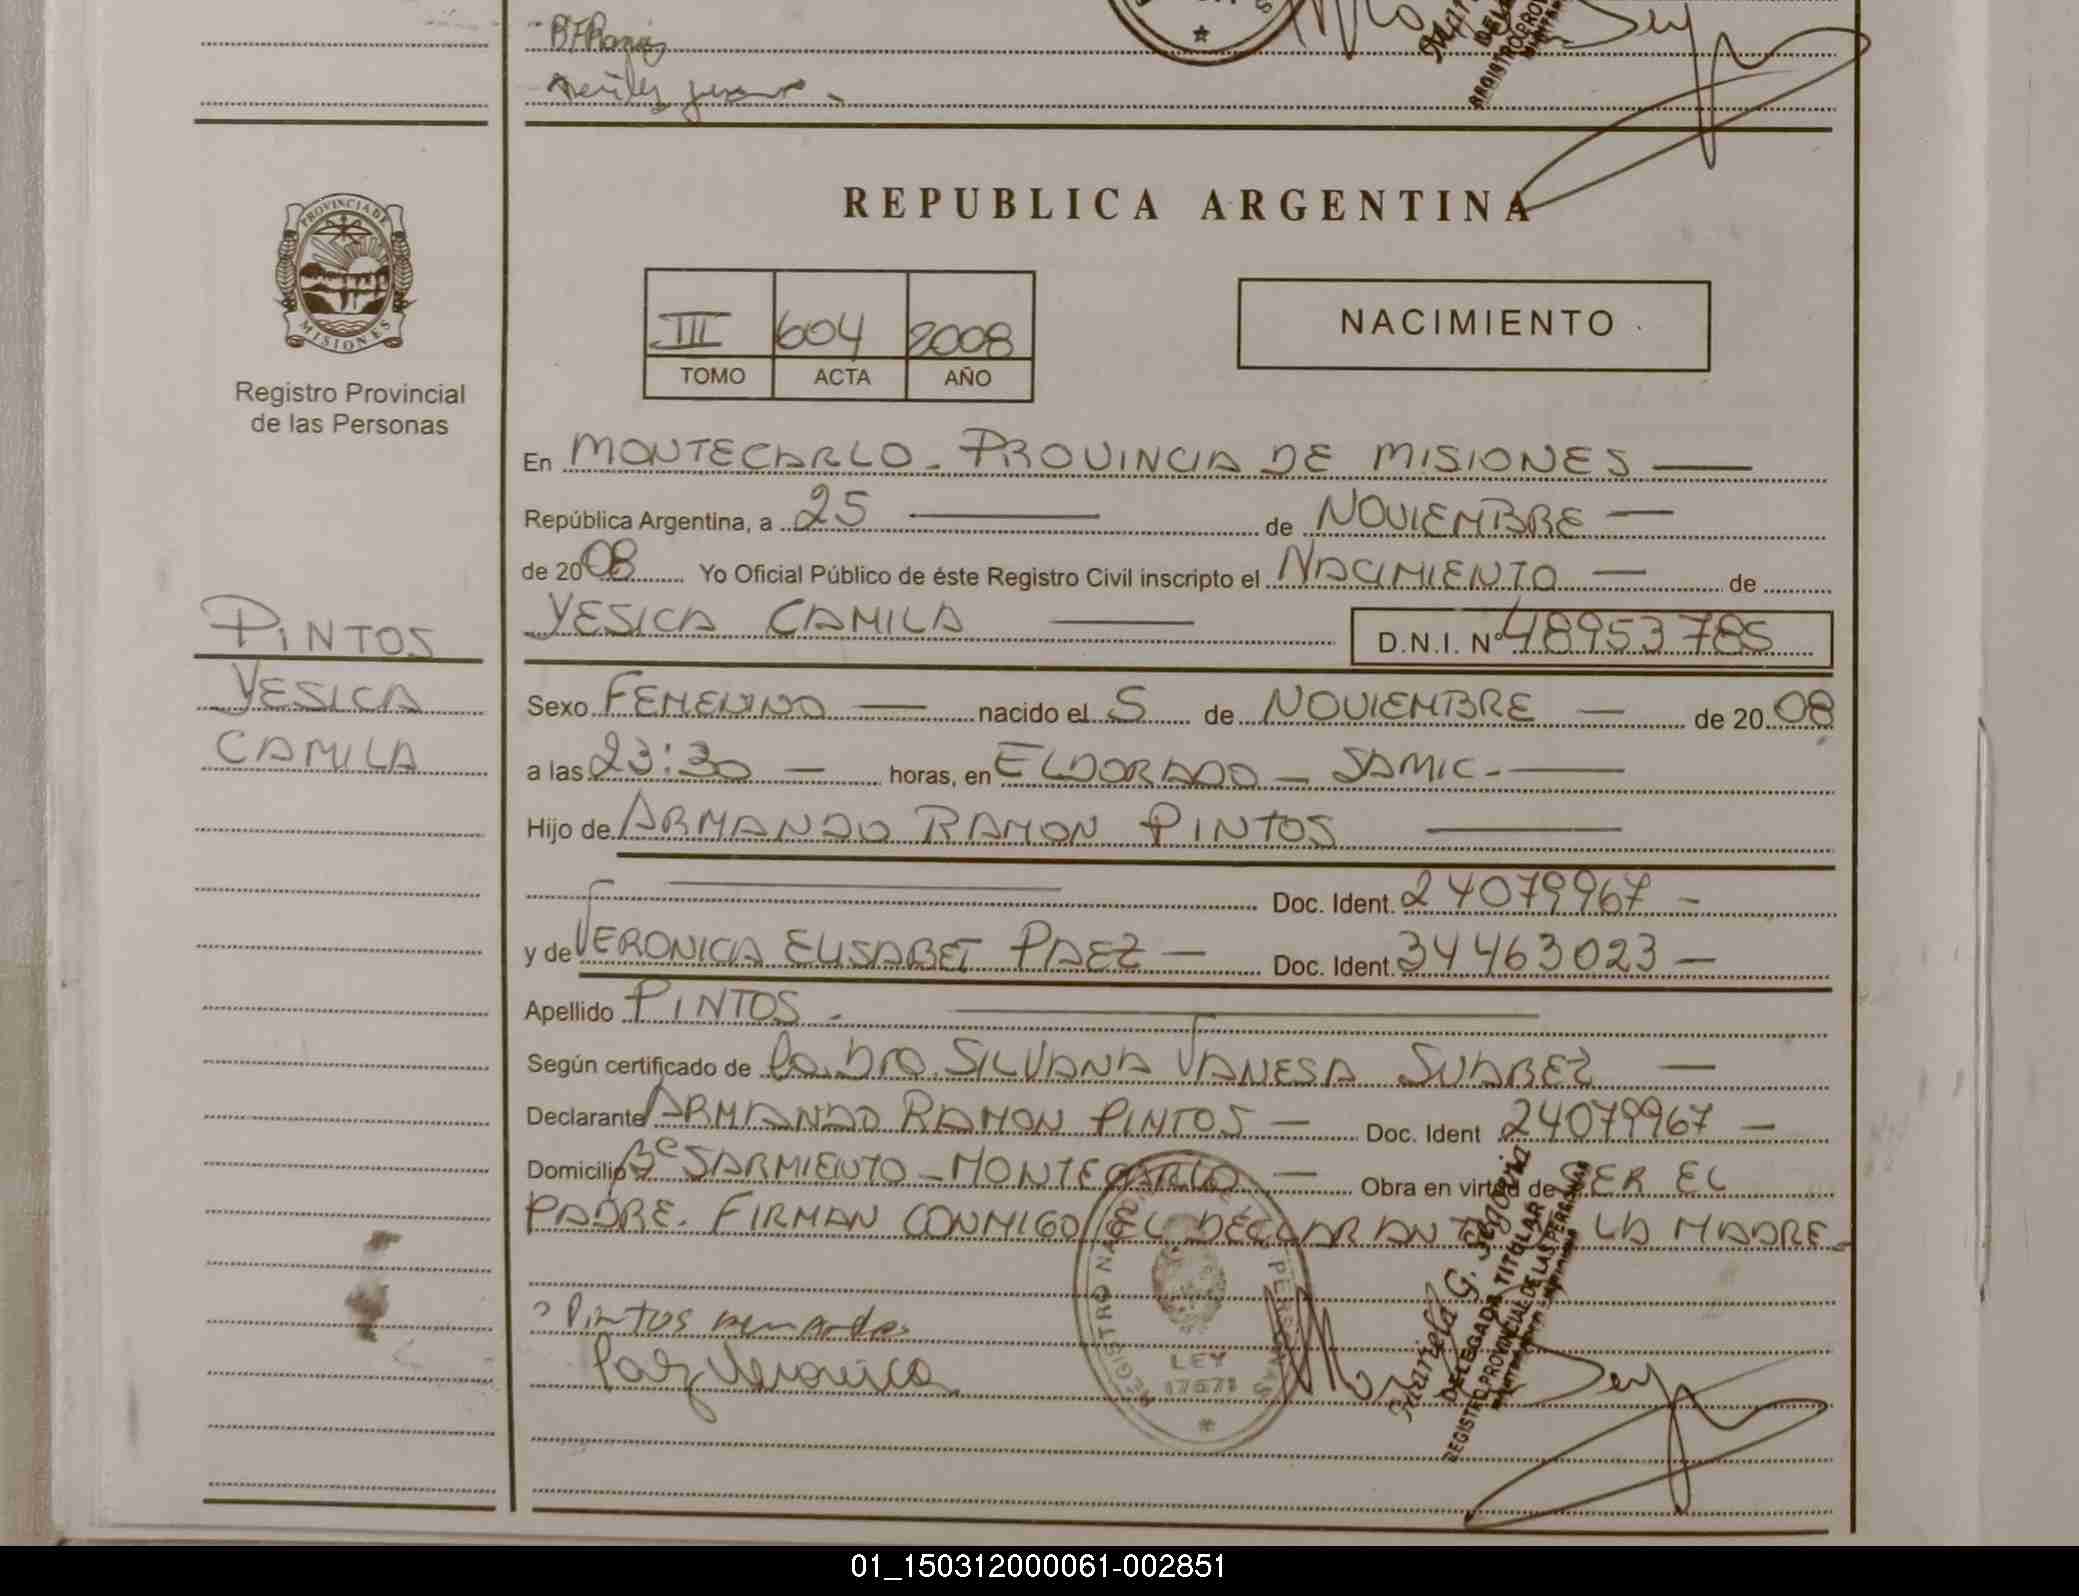 REPUBLICA ARGENTINA
PROVINCIA DE
MISIONES
Registro Provincial
de las Personas
III 604 2008
TOMO ACTA AÑO
NACIMIENTO
En MONTECARLO - PROVINCIA DE MISIONES —
República Argentina, a 25 — de NOVIEMBRE —
de 2008 Yo Oficial Público de éste Registro Civil inscripto el NACIMIENTO — de
YESICA CAMILA — D.N.I. Nº 48953785
PINTOS
YESICA
CAMILA
Sexo FEMENINO — nacido el 5 de NOVIEMBRE — de 2008
a las 23:30 — horas, en ELDORADO - SAMIC. —
Hijo de ARMANDO RAMON PINTOS —
— Doc. Ident. 24079967 -
y de VERONICA ELISABET PAEZ — Doc. Ident. 34463023 —
Apellido PINTOS. —
Según certificado de la Dra. SILVANA VANESA SUAREZ —
Declarante ARMANDO RAMON PINTOS — Doc. Ident 24079967 —
Domicilio Bº SARMIENTO - MONTECARLO — Obra en virtud de SER EL
PADRE. FIRMAN CONMIGO EL DECLARANTE LA MADRE -
Pintos Armando
Paez Veronica
LEY
17671
Mariela G. Segovia
DELEGADA TITULAR
REGISTRO PROVINCIAL DE LAS PERSONAS
01_150312000061-002851